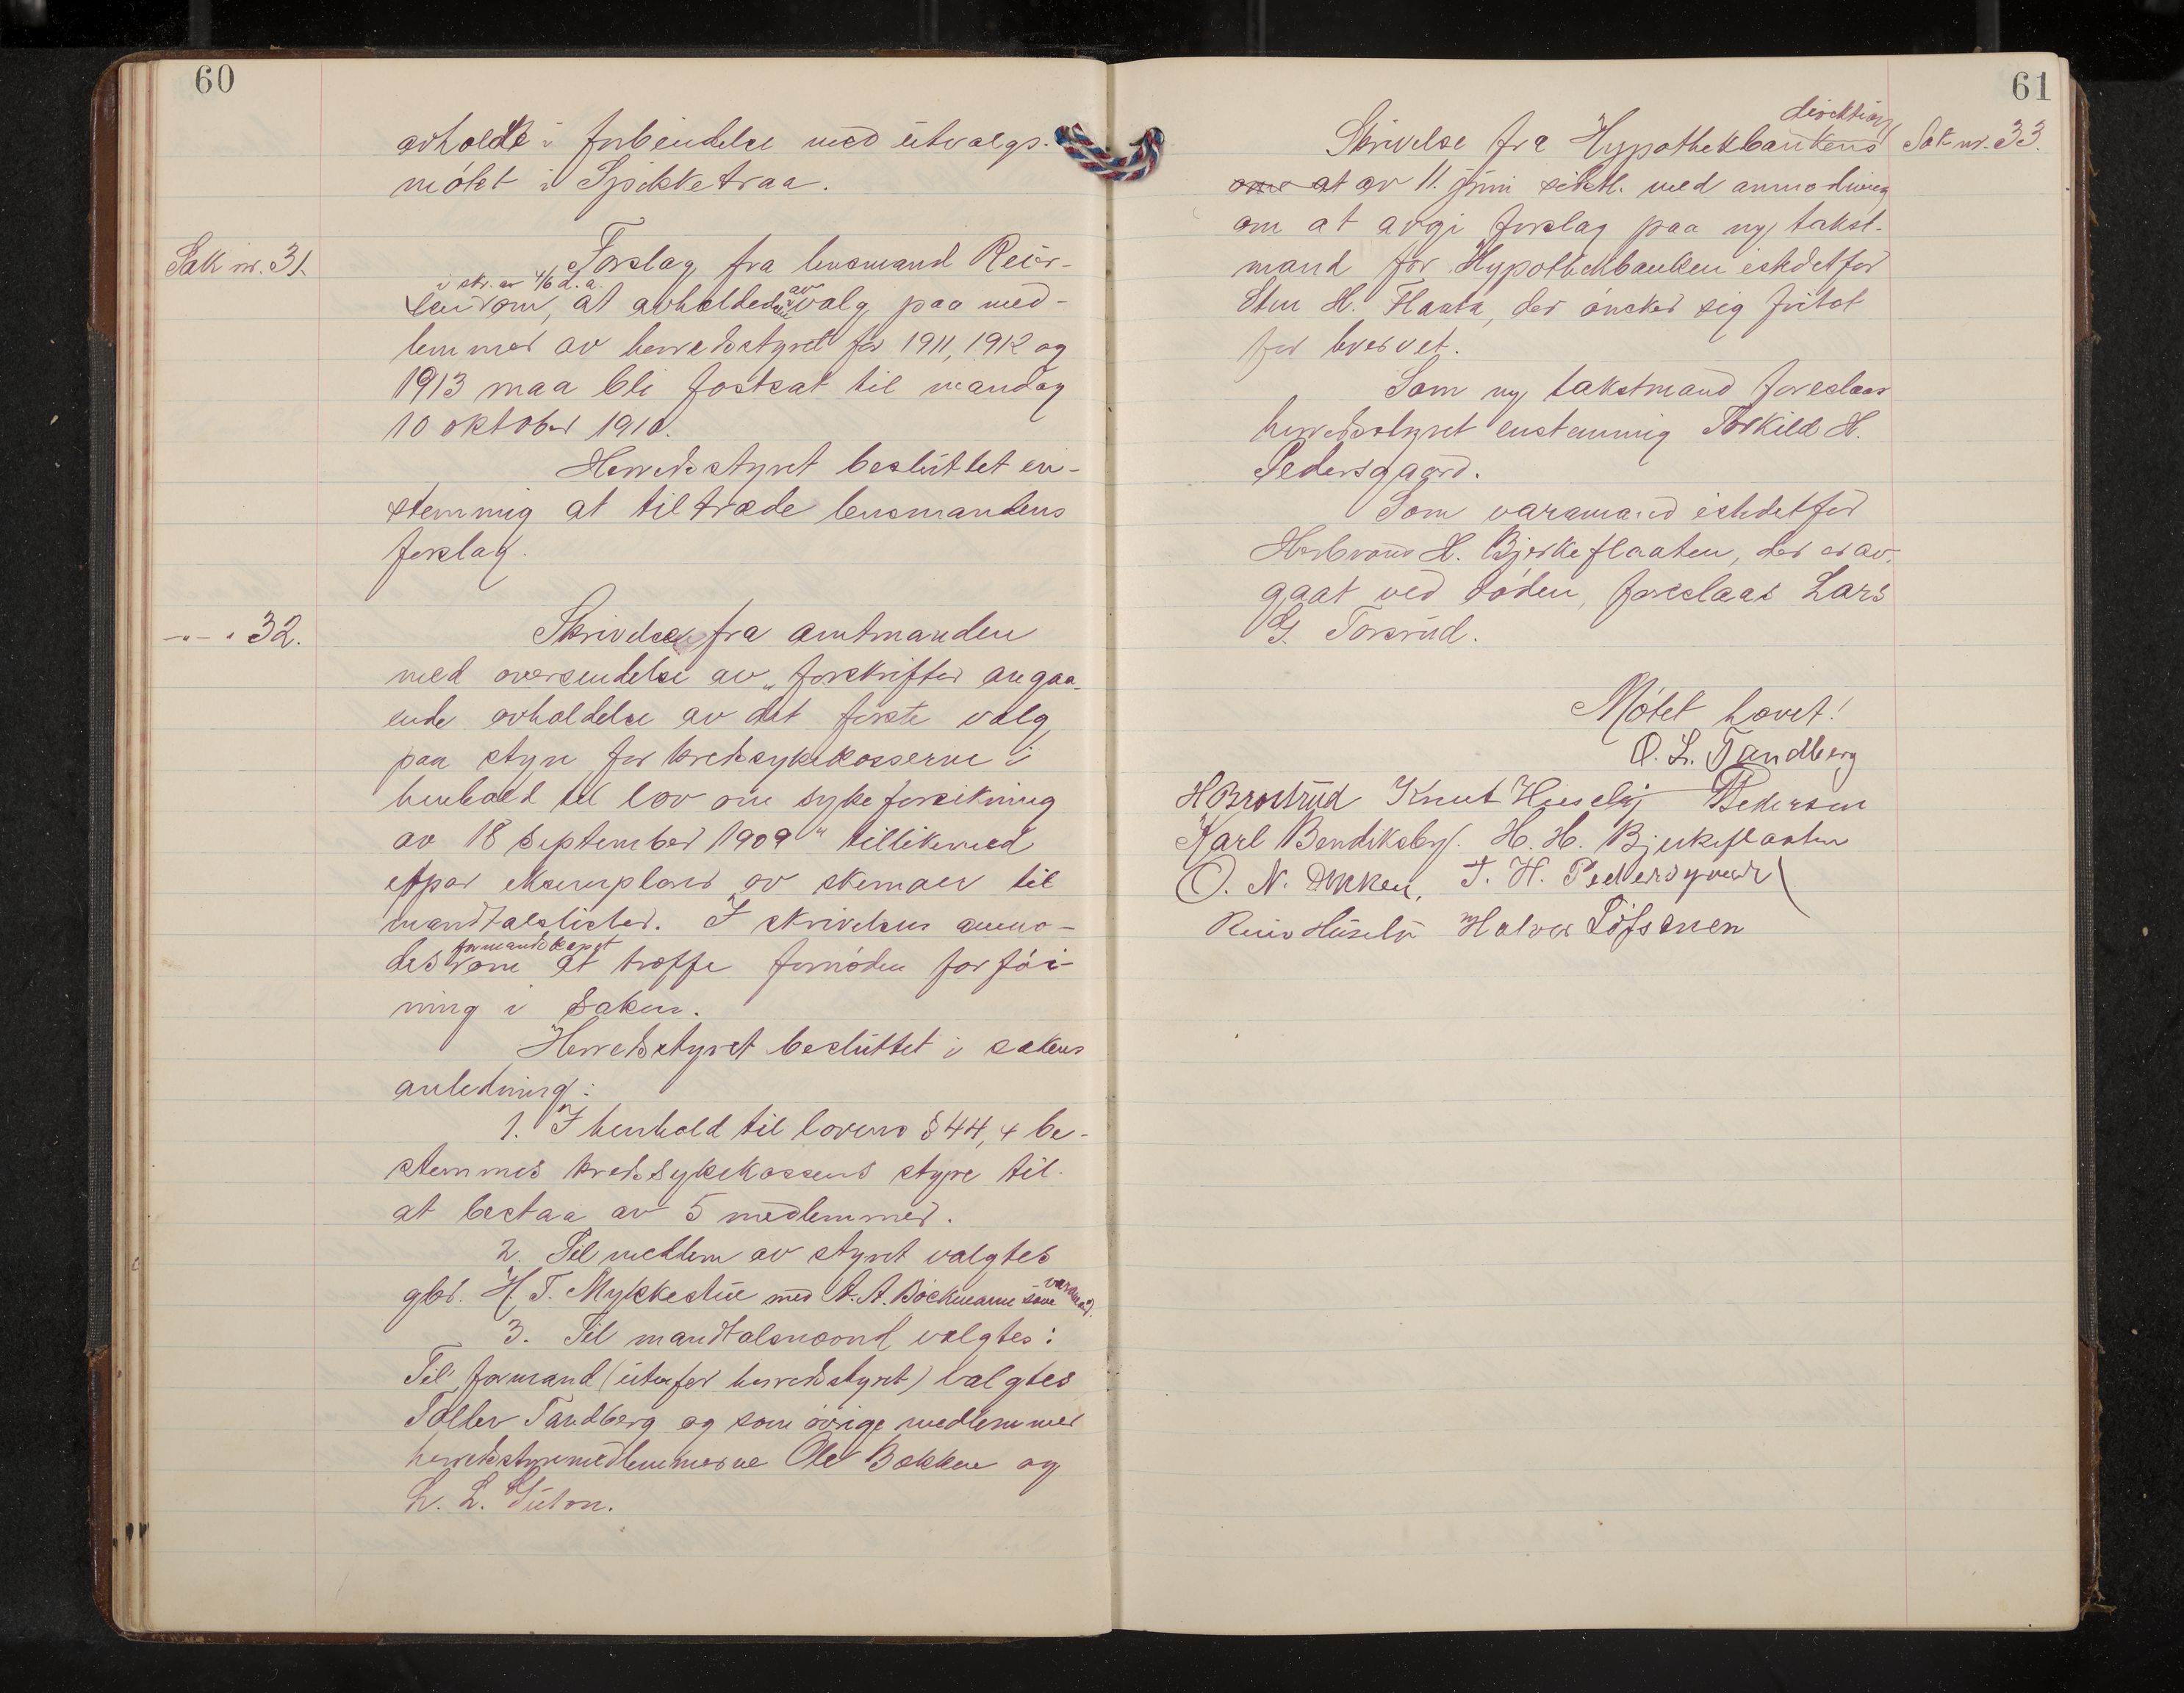 60
avholdt i forbindelse med utvalgs-
møtet i Spikketraa.
Sak nr. 31.
Forslag fra lensmand Reier-
i skr. av 4/6 d. a.
sen om, at avholdelse av valg paa med-
lemmer av herredsstyret for 1911, 1912 og
1913 maa bli fastsat til mandag
10 oktober 1910.
Herredsstyret besluttet en-
stemmig at tiltræde lensmandens
forslag.
-"- " 32.
Skrivelse fra amtmanden
med oversendelse av "forskrifter angaa-
ende avholdelse av det første valg
paa styre for kredssykekasserne i
henhold til lov om sykeforsikring
av 18 september 1909" tillikemed
etpar eksemplarer av skemaer til
mandtalslister. I skrivelsen anmo-
formandskapet
des om at træffe fornøden forføi-
ning i saken.
Herredsstyret besluttet i sakens
anledning:
1. I henhold til lovens § 44, 4 be-
stemmes kredssykekassens styre til
at bestaa av 5 medlemmer.
2. Til medlem av styret valgtes
gbr. H. T. Mykkestue med A. A. Bøckmann som varamand.
3. Til mandtalsnævnd valgtes:
Til formand (utenfor herredsstyret) valgtes
Tollev Tandberg og som øvrige medlemmer
herredsstyremedlemmerne Ole Bakken og
L. L. Guton.
61
direktion
Skrivelse fra Hypothekbankens
Sak nr. 33.
om at av 11. juni sidstl. med anmodning
om at avgi forslag paa ny takst-
mand for Hypothekbanken istedetfor
Sten H. Flaata, der ønsker sig fritat
for hvervet.
Som ny takstmand foreslaar
herredsstyret enstemmig Torkild H.
Pedersgaard.
Som varamand istedetfor
Herbrand H. Bjerkeflaaten, der er av-
gaat ved døden, foreslaaes Lars
G. Torsrud.
Møtet hævet!
O. L. Tandberg
H Brostrud Knut Huseby Pedersen
Karl Bendiksby. H. H. Bjerkeflaaten
O. N. Bakken, T. H. Pedersgaard
Reier Huseby Halvor Lofsenen